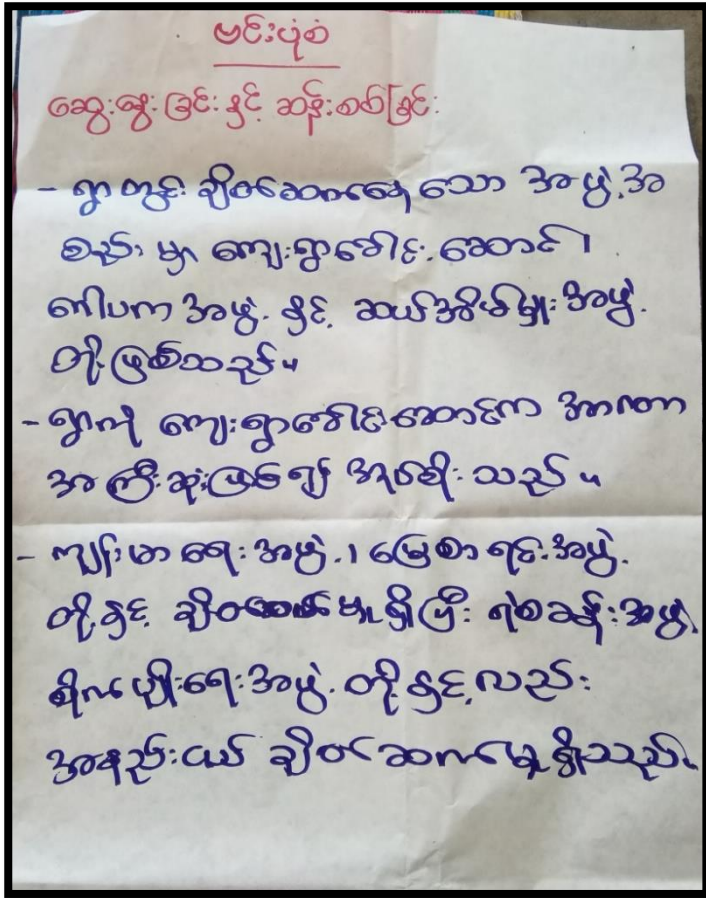 ဗင်းပုံစံ
ဆွေးနွေးခြင်းနှင့် ဆန်းစစ်ခြင်း
- ရွာတွင်း ချိတ်ဆက်နေသော အဖွဲ့အ
စည်း မှာ ကျေးရွာခေါင်းဆောင်၊
ကော်မတီအဖွဲ့ နှင့် ဆယ်အိမ်မှူးအဖွဲ့
တို့ဖြစ်သည်။
- ရွာကို ကျေးရွာခေါင်းဆောင်က အာဏာ
အကြီးဆုံးဖြစ်၍ အုပ်စိုးသည်။
- ကျန်းမာရေးအဖွဲ့၊ မြေစာရင်းအဖွဲ့
တို့နှင့် ချိတ်ဆက်မှုရှိပြီး ရဲစခန်းအဖွဲ့
စိုက်ပျိုးရေးအဖွဲ့တို့နှင့်လည်း
အနည်းငယ် ချိတ်ဆက်မှုရှိသည်။